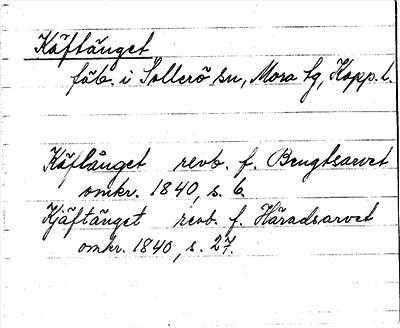 Käftänget
fäb. i Sollerö sn, Mora tg, Kopp. l.
Käftånget revb. f. Bengtsarvet
omkr. 1840, s. 6.
Kjäftänget revb. f. Häradsarvet
omkr. 1840, s. 27.